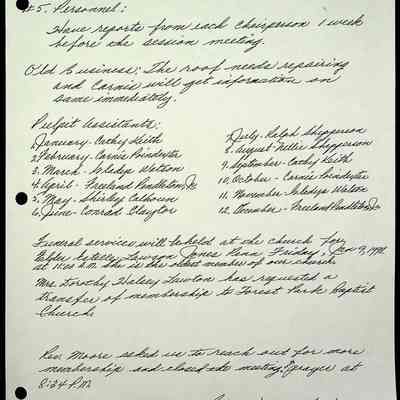 #5. Personnel:
Have reports from each Chairperson 1 week
before the session meeting.
Old Business: The roof needs repairing
and Carnis will get information on
same immediately.
Pulpit Assistants:
1. January - Cathy Keith
2. February - Carnis Poindexter
3. March - Gladys Watson
4. April - Freeland Pendleton, Jr.
5. May - Shirley Calhoun
6. June - Conrad Claytor
7. July - Ralph Shepperson
8. August - Nellie Shepperson
9. September - Cathy Keith
10. October - Carnis Poindexter
11. November - Gladys Watson
12. December - Freeland Pendleton, Jr.
Funeral services will be held at the church for
Elder Estelle Lawson Jones Penn, Friday, Jan 9, 1998
at 11:00 A.M. She is the oldest member of our church.
Mrs. Dorothy Halsey Lawton has requested a
transfer of membership to Forest Park Baptist
Church.
Rev. Moore asked us to reach out for more
membership and closed the meeting prayer at
8:24 P.M.